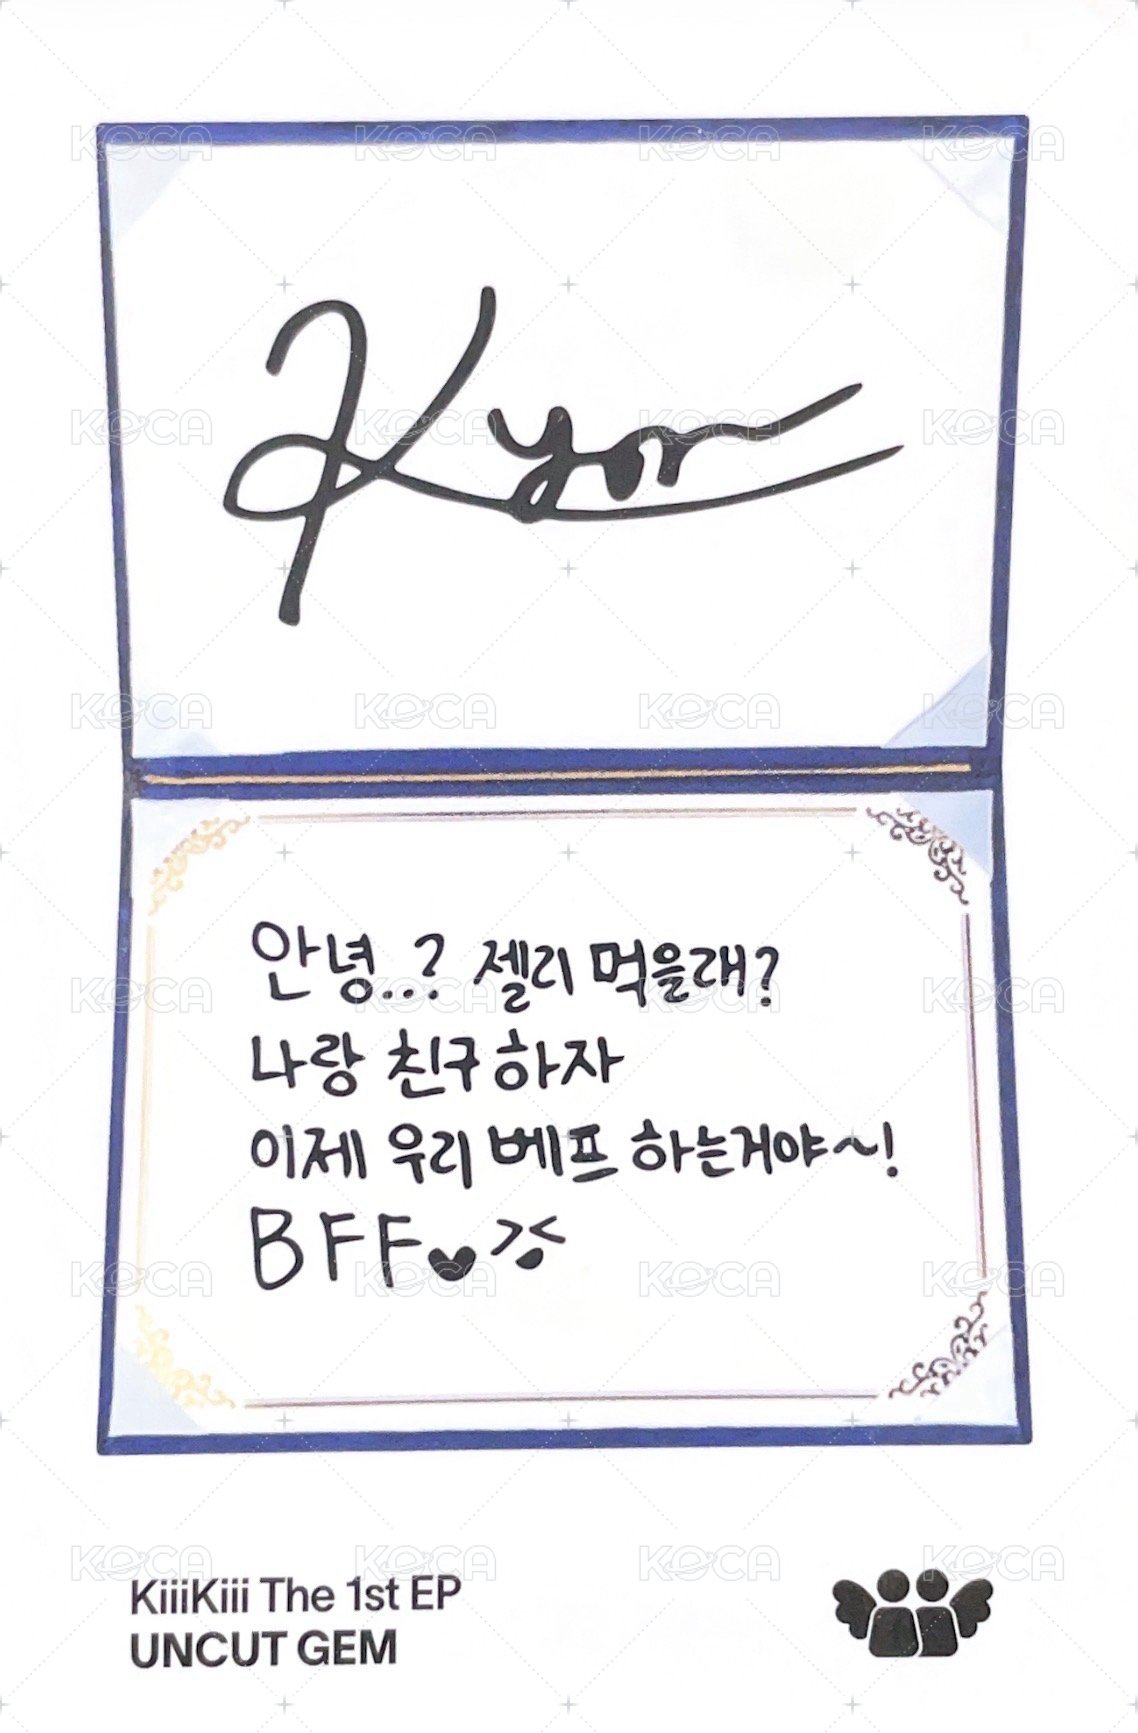 Kyor
안녕..? 젤리 먹을래?
나랑 친구하자
이제 우리 베프 하는거야~!
BFF
KiiiKiii The 1st EP
UNCUT GEM
KOCA